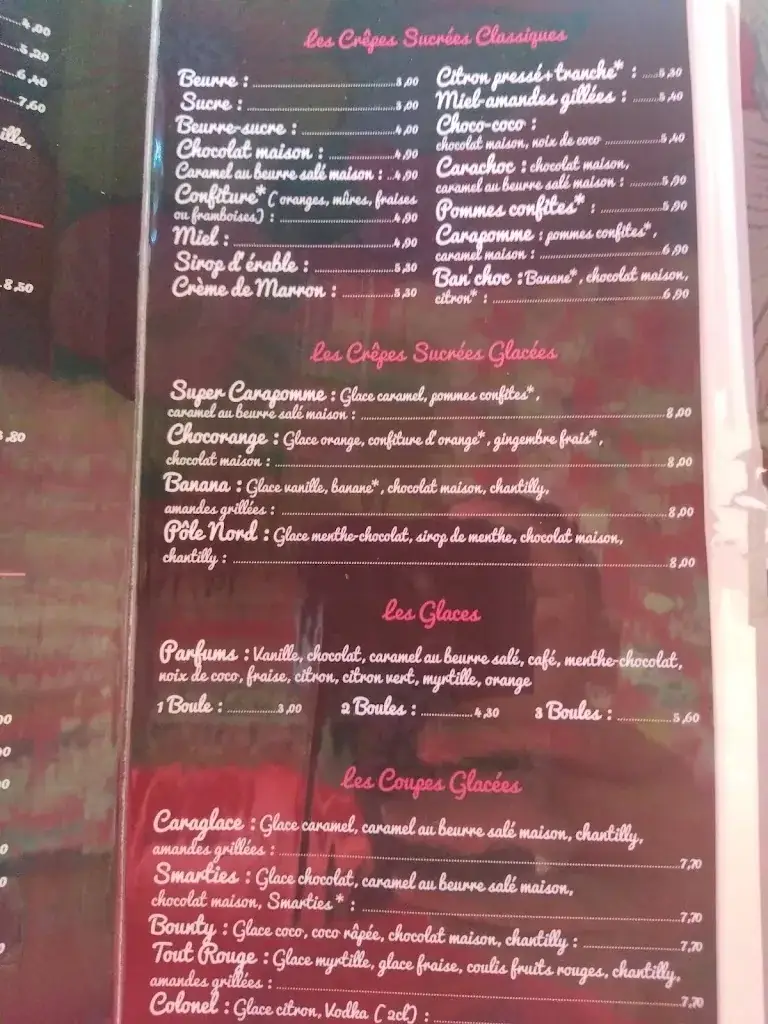 4,00
5,20
6,40
7,60
ille,
8,50
,80
Les Crêpes Sucrées Classiques
Beurre : 3,00
Sucre : 3,00
Beurre-sucre : 4,00
Chocolat maison : 4,90
Caramel au beurre salé maison : 4,90
Confiture* ( oranges, mûres, fraises
ou framboises) : 4,90
Miel : 4,90
Sirop d'érable : 5,30
Crème de Marron : 5,30
Citron pressé+tranche* : 5,30
Miel-amandes gillées : 5,40
Choco-coco :
chocolat maison, noix de coco 5,40
Carachoc : chocolat maison,
caramel au beurre salé maison : 5,90
Pommes confites* : 5,90
Carapomme : pommes confites*,
caramel maison : 6,90
Ban'choc : Banane*, chocolat maison,
citron* : 6,90
Les Crêpes Sucrées Glacées
Super Carapomme : Glace caramel, pommes confites*,
caramel au beurre salé maison : 8,00
Chocorange : Glace orange, confiture d'orange*, gingembre frais*,
chocolat maison : 8,00
Banana : Glace vanille, banane*, chocolat maison, chantilly,
amandes grillées : 8,00
Pôle Nord : Glace menthe-chocolat, sirop de menthe, chocolat maison,
chantilly : 8,00
Les Glaces
Parfums : Vanille, chocolat, caramel au beurre salé, café, menthe-chocolat,
noix de coco, fraise, citron, citron vert, myrtille, orange
1 Boule : 3,00 2 Boules : 4,30 3 Boules : 5,60
Les Coupes Glacées
Caraglace : Glace caramel, caramel au beurre salé maison, chantilly,
amandes grillées : 7,70
Smarties : Glace chocolat, caramel au beurre salé maison,
chocolat maison, Smarties* : 7,70
Bounty : Glace coco, coco râpée, chocolat maison, chantilly : 7,70
Tout Rouge : Glace myrtille, glace fraise, coulis fruits rouges, chantilly,
amandes grillées : 7,70
Colonel : Glace citron, Vodka ( 2cl) :